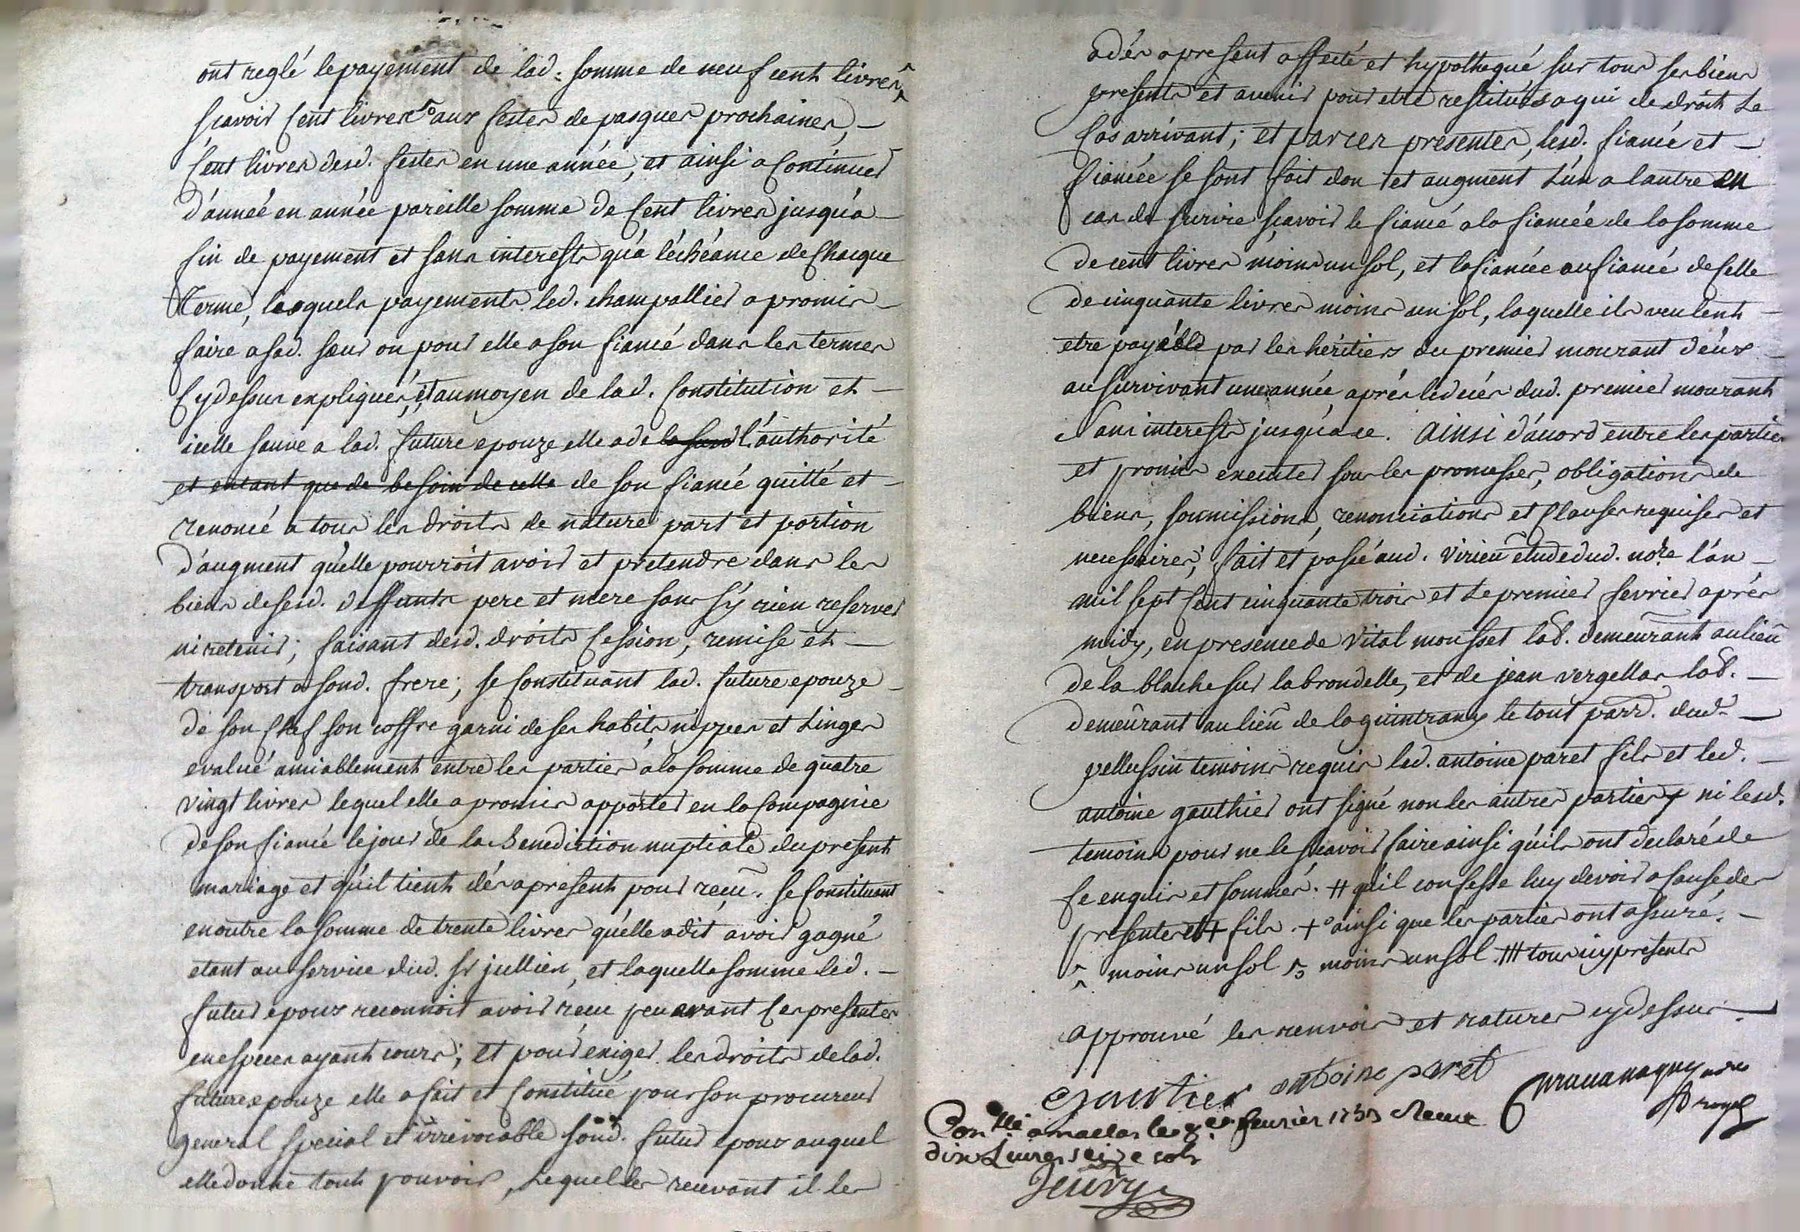 ont reglé le payement de lad. somme de neuf cent livres ^
sçavoir Cent livres aux festes de pasques prochaines, –
Cent livres desd. festes en une année, et ainsi a Continuer
d'année en année pareille somme de Cent livres jusqu'a –
fin de payement et sans interests qu'a l'échéance de Chaque
Terme, lesquels payements led. champallier a promis –
faire a sad. sœur ou pour elle a son fiancé dans les termes
Cydessus expliqués, et au moyen de lad. Constitution et –
icelle sauve a lad. future epouze elle a de la sand l'authorité
et entant que de besoin de celle de son fiancé quitté et –
renoncé a tous les droits de nature part et portion
d'augment qu'elle pourroit avoir et pretendre dans les
biens desesd. deffunts pere et mere sans s'y rien reserver
ni retenir; faisant desd. droits Cession, remise et –
transport a sond. frere; se Constituant lad. future epouze –
de son Chef son coffre garni de ses habits, nippes et Linges
evalué amiablement entre les parties a la somme de quatre
vingt livres lequel elle a promis apporter en la Compagnie
de son fiancé le jour de la Benediction nuptiale du present
mariage et qu'il tient dés a present pour reçu. se Constituant
en outre la somme de trente livres qu'elle a dit avoir gagné
etant au service dud. sr jullien, et laquelle somme led. –
futur epoux reconnoit avoir reçu peu avant Ces presentes
en especes ayant cours; et pour exiger les droits de lad.
future epouze elle a fait et Constitué pour son procureur
general special et irrévocable sond. futur epoux auquel
elle donne tout pouvoir, Lequel les recevant il les
a dés a present affecté et hypothequé sur tous ses biens
presents et avenir pour etre restitués a qui de droit Le
Cas arrivant; et par ces presentes, lesd. fiancé et –
fiancée se sont fait don et augment L'un a l'autre en
cas de survie sçavoir le fiancé a la fiancée de la somme
de cent livres moins un sol, et la fiancée au fiancé de Celle
de cinquante livres moins un sol, laquelle ils veulent –
etre payable par les héritiers du premier mourant d'eux –
au survivant une année aprés le decés dud. premier mourant
sans interests jusqu'a ce. Ainsi d'acord entre les parties
et promis executer sous les promesses, obligations de
biens, soumissions, renonciations et Clauses requises et
necessaires; fait et passé aud. virieu étude dud. nore l'an –
mil sept Cent cinquante trois et Le premier fevrier aprés
midy, en presence de Vital mousset lab. demeurant au lieu
de la blache sur la brondelle, et de jean vergellas lab. –
demeurant au lieu de la guintrany le tout parr. dud. –
pellussin temoins requis led. antoine paret fils et led. –
antoine gauthier ont signé non les autres parties ni lesd.
temoins pour ne le sçavoir faire ainsi qu'ils ont declaré de
Ce enquis et sommés. # qu'il confesse luy devoir a Cause des
presentes # fils. + ainsi que les parties ont assuré. –
^ moins un sol moins un sol. ## tous icy presents
approuvé les renvois et ratures cydessus –
gautier antoine paret
Con.llé a maclas le fevrier 1753 Reçu
dix Livres seize sols